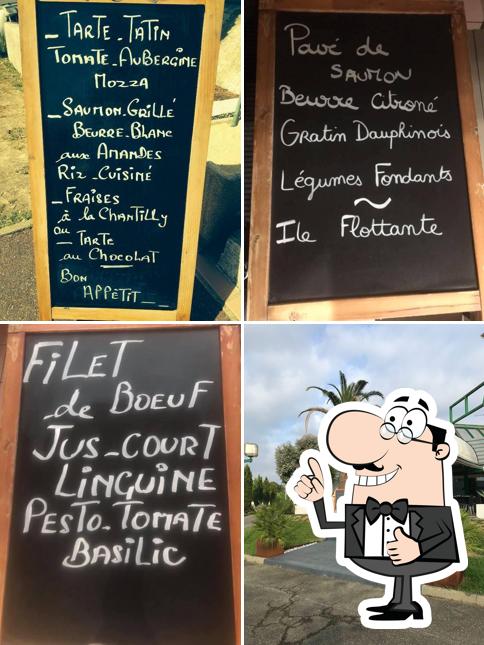 _ TARTE_TATIN
TOMATE_AUBERGINE
MOZZA
_ SAUMON_GRILLÉ
BEURRE_BLANC
aux AMANDES
RIZ_CUISINÉ
_ FRAISES
à la CHANTILLY
ou
_ TARTE
au CHOCOLAT
BON
APPÉTIT__
Pavé de
SAUMON
Beurre Citroné
Gratin Dauphinois
Légumes Fondants
~
Ile Flottante
FiLET
_de BOEUF
JUS_COURT
LINGUINE
PESTO_TOMATE
BASiLiC